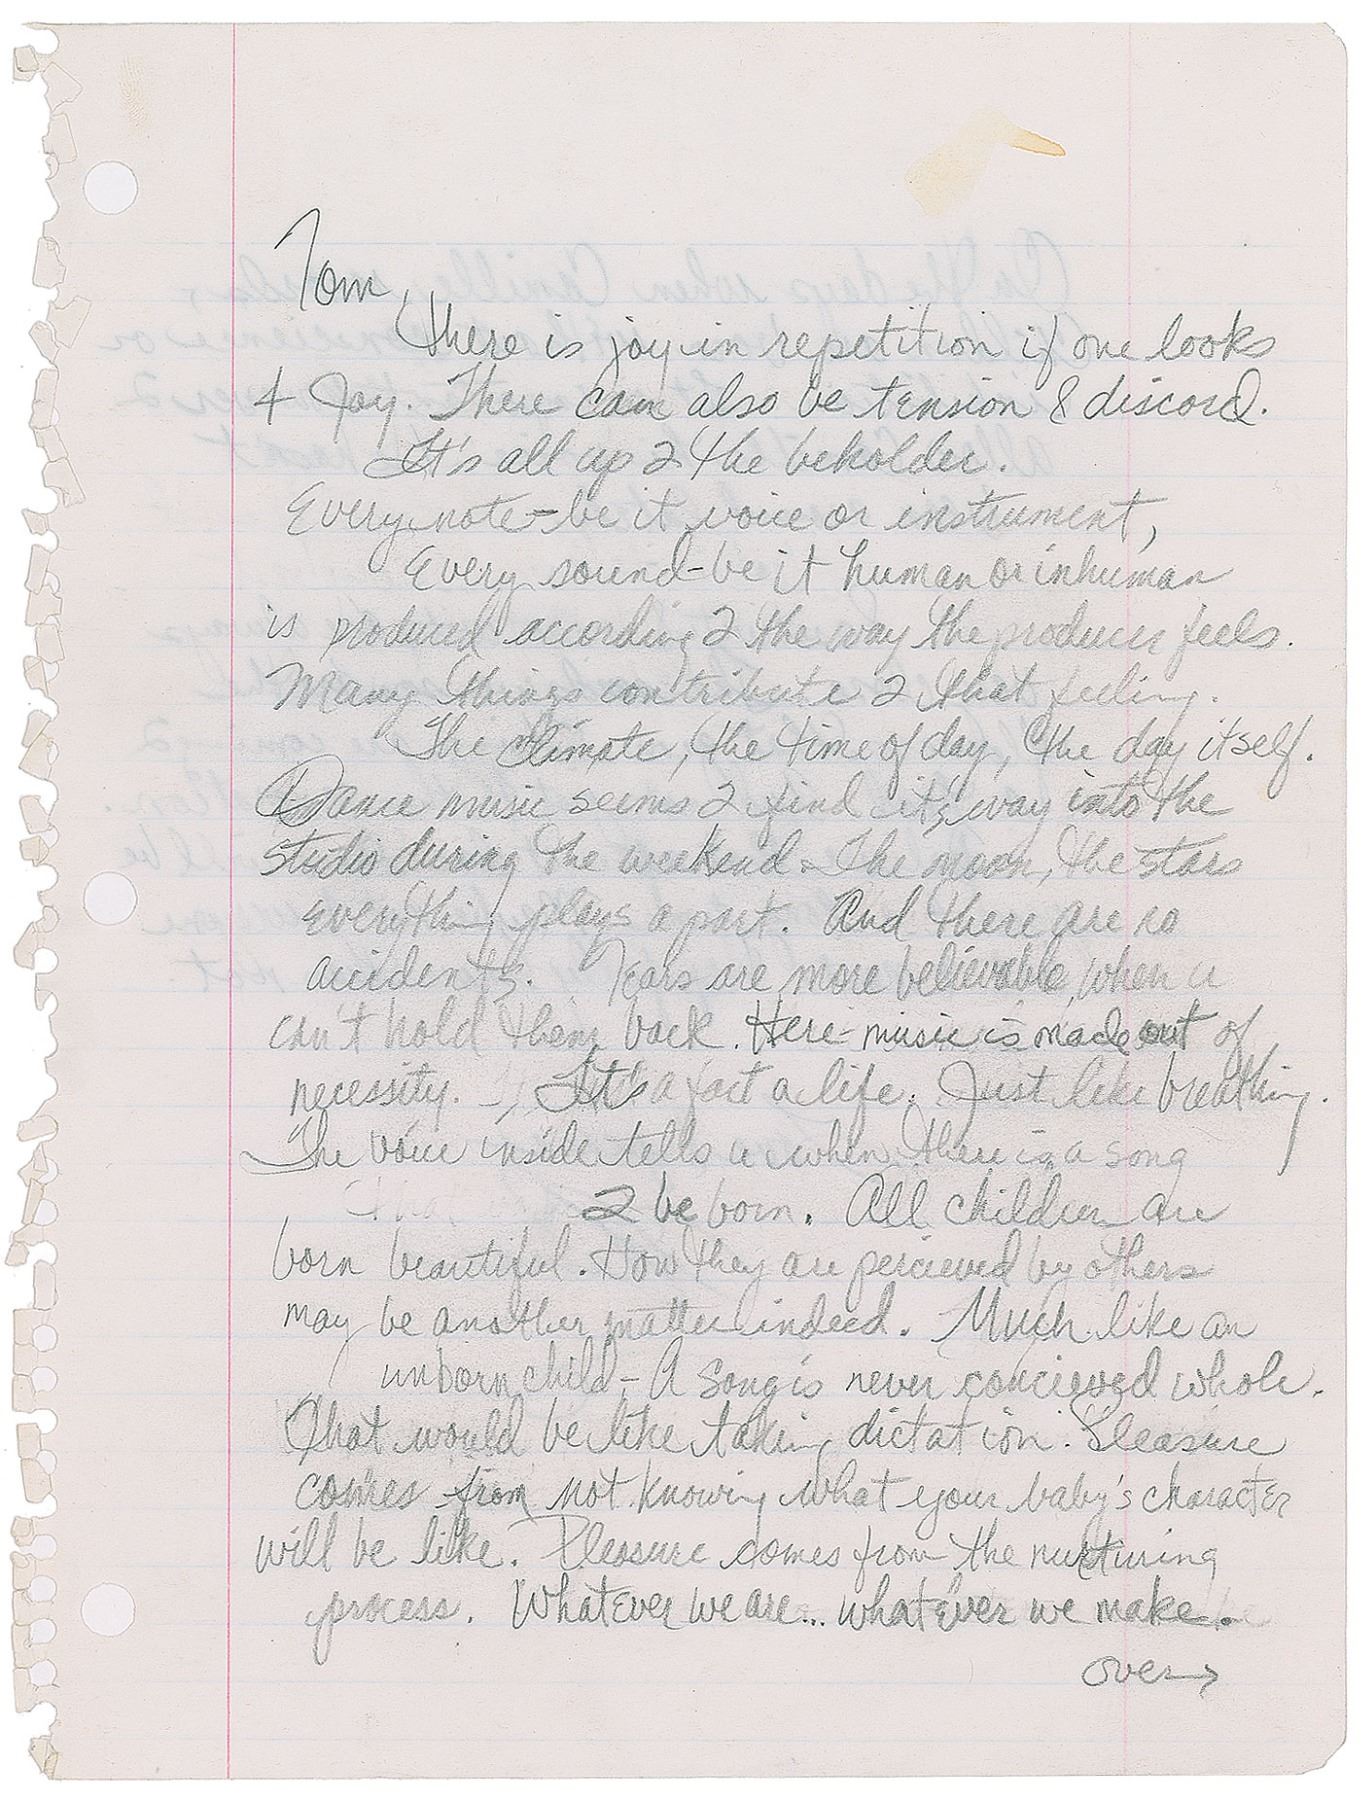 Tom,
There is joy in repetition if one looks
4 Joy. There can also be tension & discord.
It's all up 2 the beholder.
Every note - be it voice or instrument,
Every sound - be it human or inhuman
is produced according 2 the way the producer feels.
Many things contribute 2 that feeling.
The climate, the time of day, the day itself.
Dance music seems 2 find it's way into the
studio during the weekend. The moon, the stars
everything plays a part. And there are no
accidents. Tears are more believable when u
can't hold them back. Here - music is made out of
necessity. It's a fact a life. Just like breathing.
The voice inside tells u when there is a song
2 be born. All children are
born beautiful. How they are percieved by others
may be another matter indeed. Much like an
unborn child - A song is never concieved whole.
That would be like taking dictation. Pleasure
comes from not knowing what your baby's character
will be like. Pleasure comes from the nurturing
process. Whatever we are... whatever we make.
over →